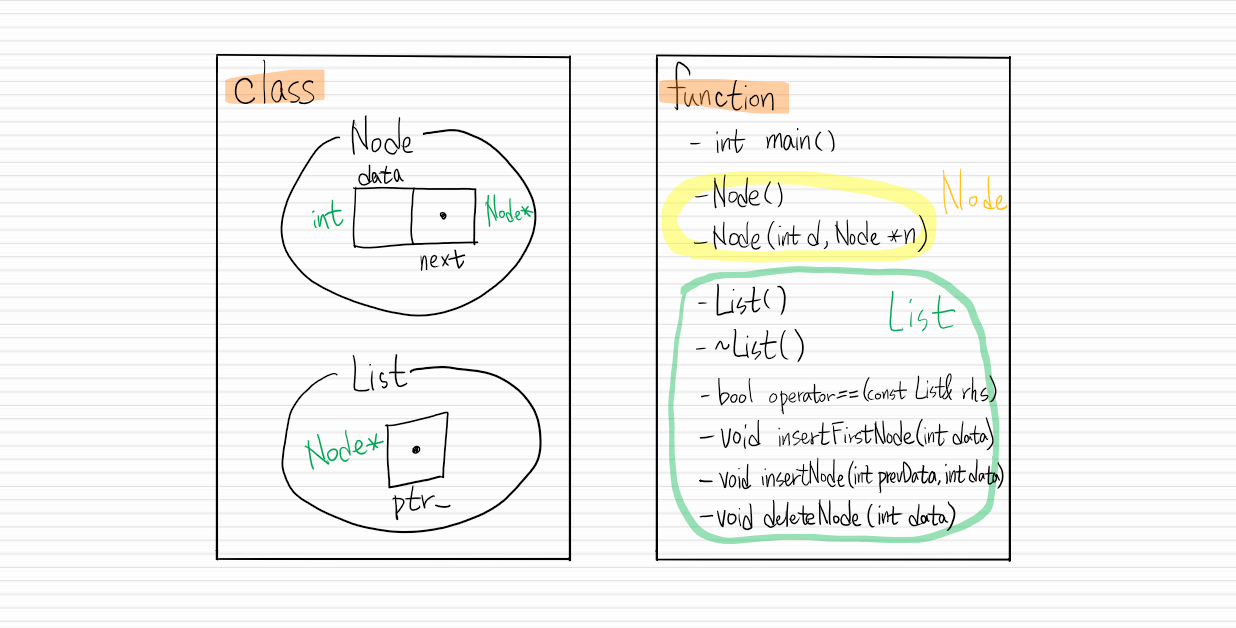 class
Node
data
int
Node*
next
List
Node*
ptr_
function
- int main()
- Node()
- Node(int d, Node *n)
Node
- List()
List
- ~List()
- bool operator==(const List& rhs)
- void insertFirstNode(int data)
- void insertNode(int prevData, int data)
- void deleteNode(int data)